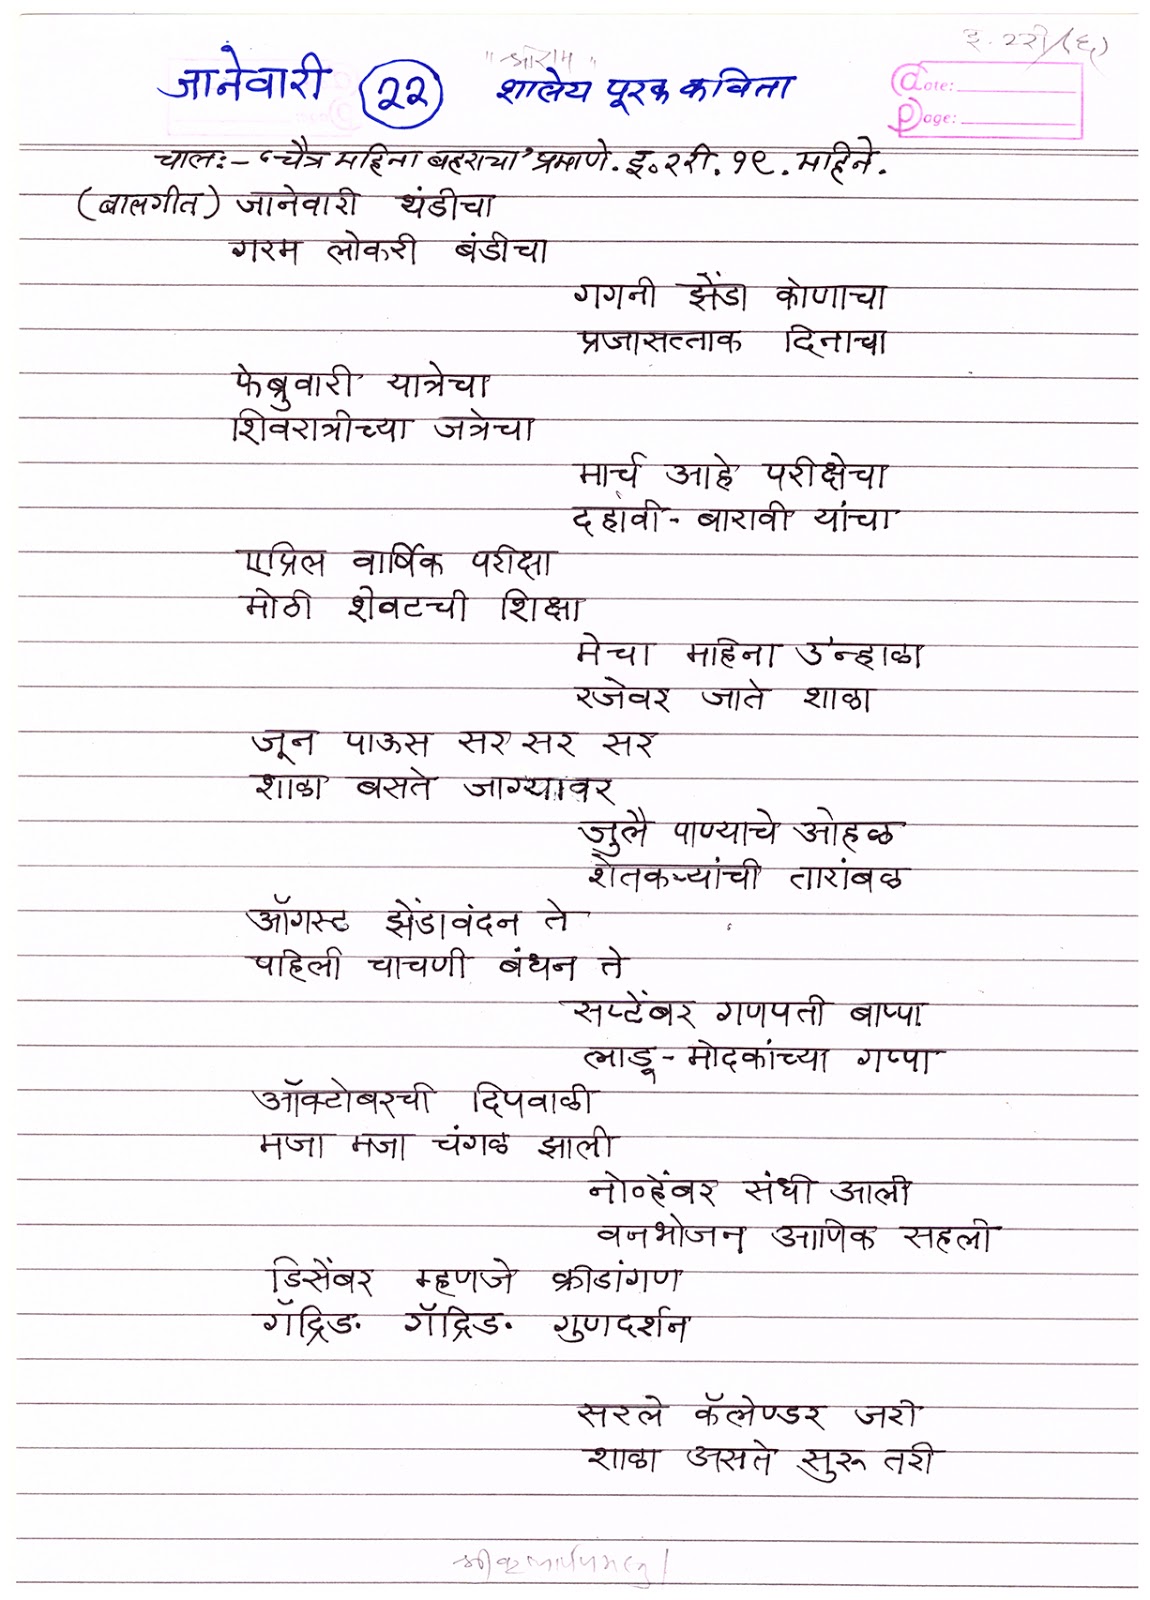 इ. २री/(६)
"श्रीराम"
जानेवारी २२ शालेय पूरक कविता
Date:
Page:
चाल:- 'चैत्र महिना बहराचा' प्रमाणे. इ. २री. १९. महिने.
(बालगीत) जानेवारी थंडीचा
गरम लोकरी बंडीचा
गगनी झेंडा कोणाचा
प्रजासत्ताक दिनाचा
फेब्रुवारी यात्रेचा
शिवरात्रीच्या जत्रेचा
मार्च आहे परीक्षेचा
दहावी - बारावी यांचा
एप्रिल वार्षिक परीक्षा
मोठी शेवटची शिक्षा
मेचा महिना उन्हाळा
रजेवर जाते शाळा
जून पाऊस सर सर सर
शाळा बसते जाग्यावर
जुलै पाण्याचे ओहळ
शेतकऱ्यांची तारांबळ
ऑगस्ट झेंडावंदन ते
पहिली चाचणी बंधन ते
सप्टेंबर गणपती बाप्पा
लाडू - मोदकांच्या गप्पा
ऑक्टोबरची दिपवाळी
मजा मजा चंगळ झाली
नोव्हेंबर संधी आली
वनभोजन आणिक सहली
डिसेंबर म्हणजे क्रीडांगण
गॅद्रिंड. गॅद्रिंड. गुणदर्शन
सरले कॅलेण्डर जरी
शाळा असते सुरू तरी
श्रीकृष्णार्पणमस्तु।